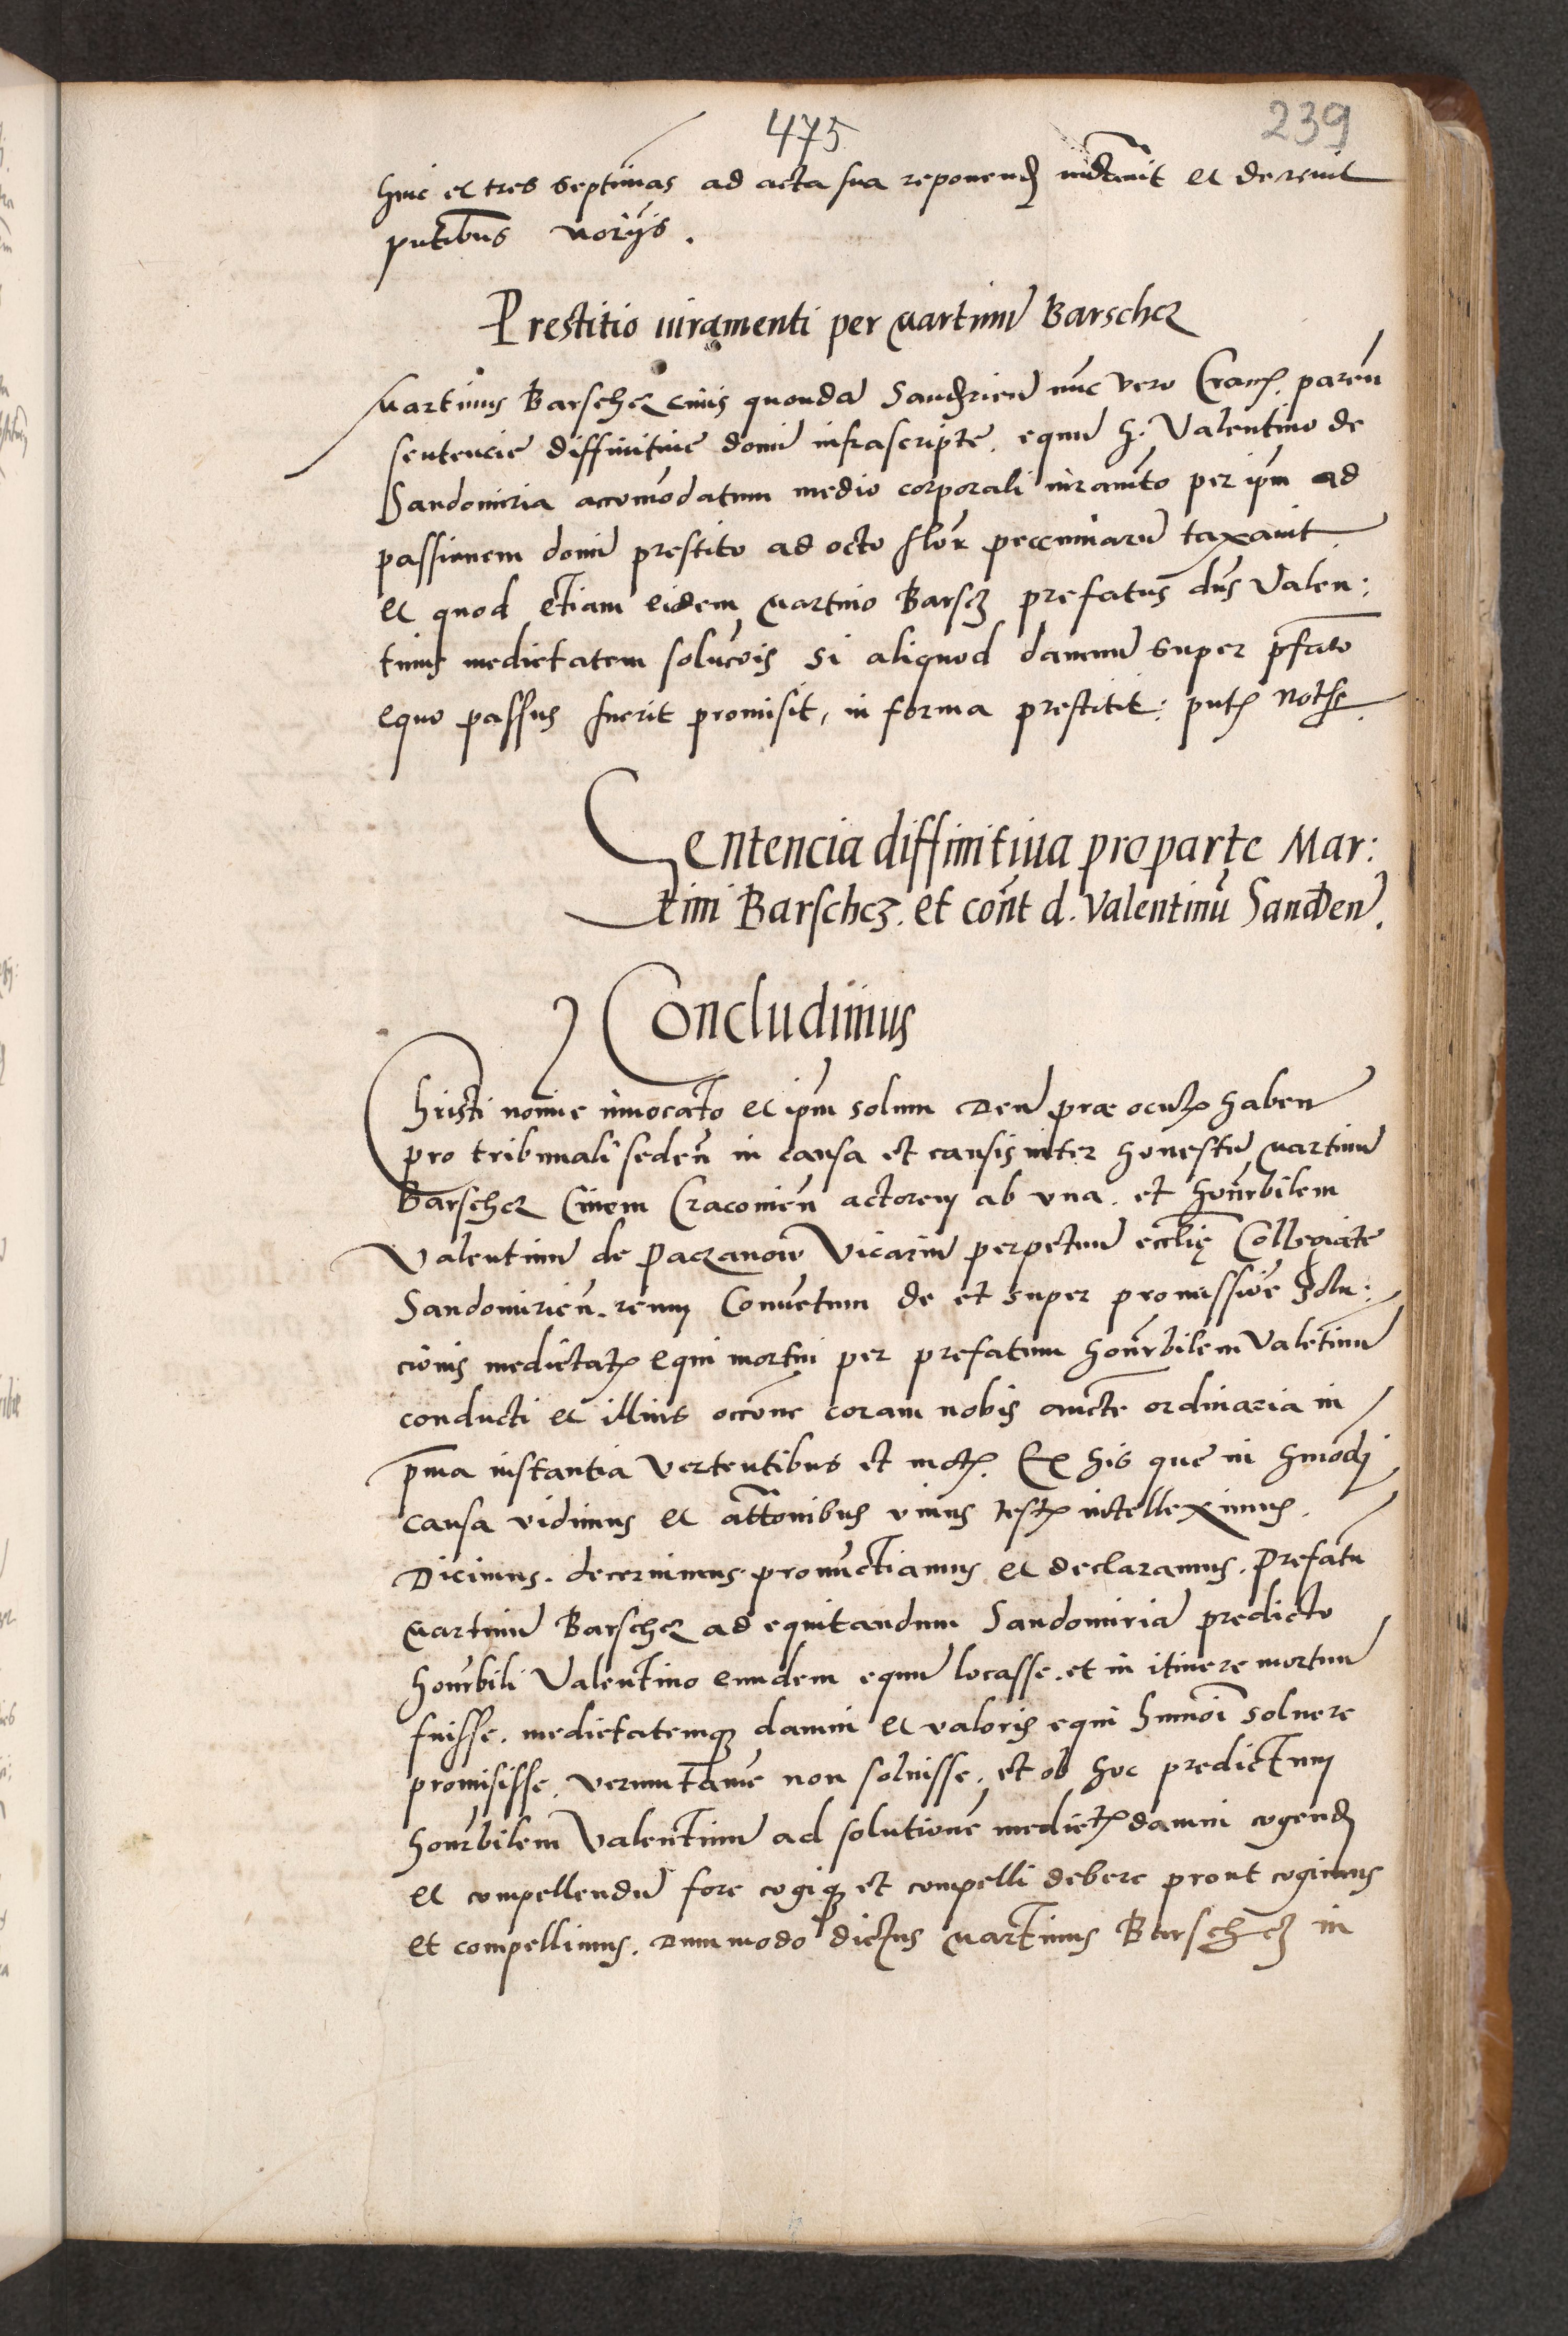 475
239
hinc et tres septimas ad acta sua reponend et decrevit
pntibus notariis.
Prestitio iuramenti per Martinu Barschcz
Martinus Barschcz civis quonda Sandzirien nuc vero Crac. paren
sentencie diffinitive domi infrascripte. equu h. Valentino de
Sandomiria accomodatum medio corporali iuramto per ipm ad
passionem domi prestito ad octo flor pecuniaru taxavit
et quod etiam eidem Martino Barscz prefatus dns Valen:
tinus medietatem solucois si aliquod damnu super pfato
equo passus fuerit promisit, in forma prestitit: pntz not
Sentencia diffinitiva pro parte Mar:
tini Barschcz. et cont d. Valentinu Sanden.
Concludimus
Christi nomine invocato et ipm solum Deu præ oculz haben
pro tribunali seden in causa et causis inter honestu Martinu
Barschcz Civem Cracovien actorem ab una. et honrbilem
Valentinu de Paczanow Vicariu perpetuu ecclię Collegiate
Sandomirien. reum Conventum de et super promissioe Solu:
cionis medietatz equi mortui per prefatum honrbilem Valetinu
conducti et illius occone coram nobis aucte ordinaria in
pma instantia vertentibus et motz. Ex his que in hmodj
causa vidimus et attonibus unius testz intelleximus.
Dicimus. decernimus. pronuctiamus et declaramus. Prefatu
Martinu Barschcz ad equitandum Sandomiria predicto
honrbili Valentino eundem equu locasse. et in itinere mortuu
fuisse. medietatemq damni et valoris equi hmnoi solvere
promisisse. verumtame non solvisse. et ob hoc predictum
honrbilem Valentinu ad solutione medietz damni cogend
et compellendu fore cogiq et compelli debere prout cogimus
et compellimus. Dummodo pdictus Martinus Barschcz in